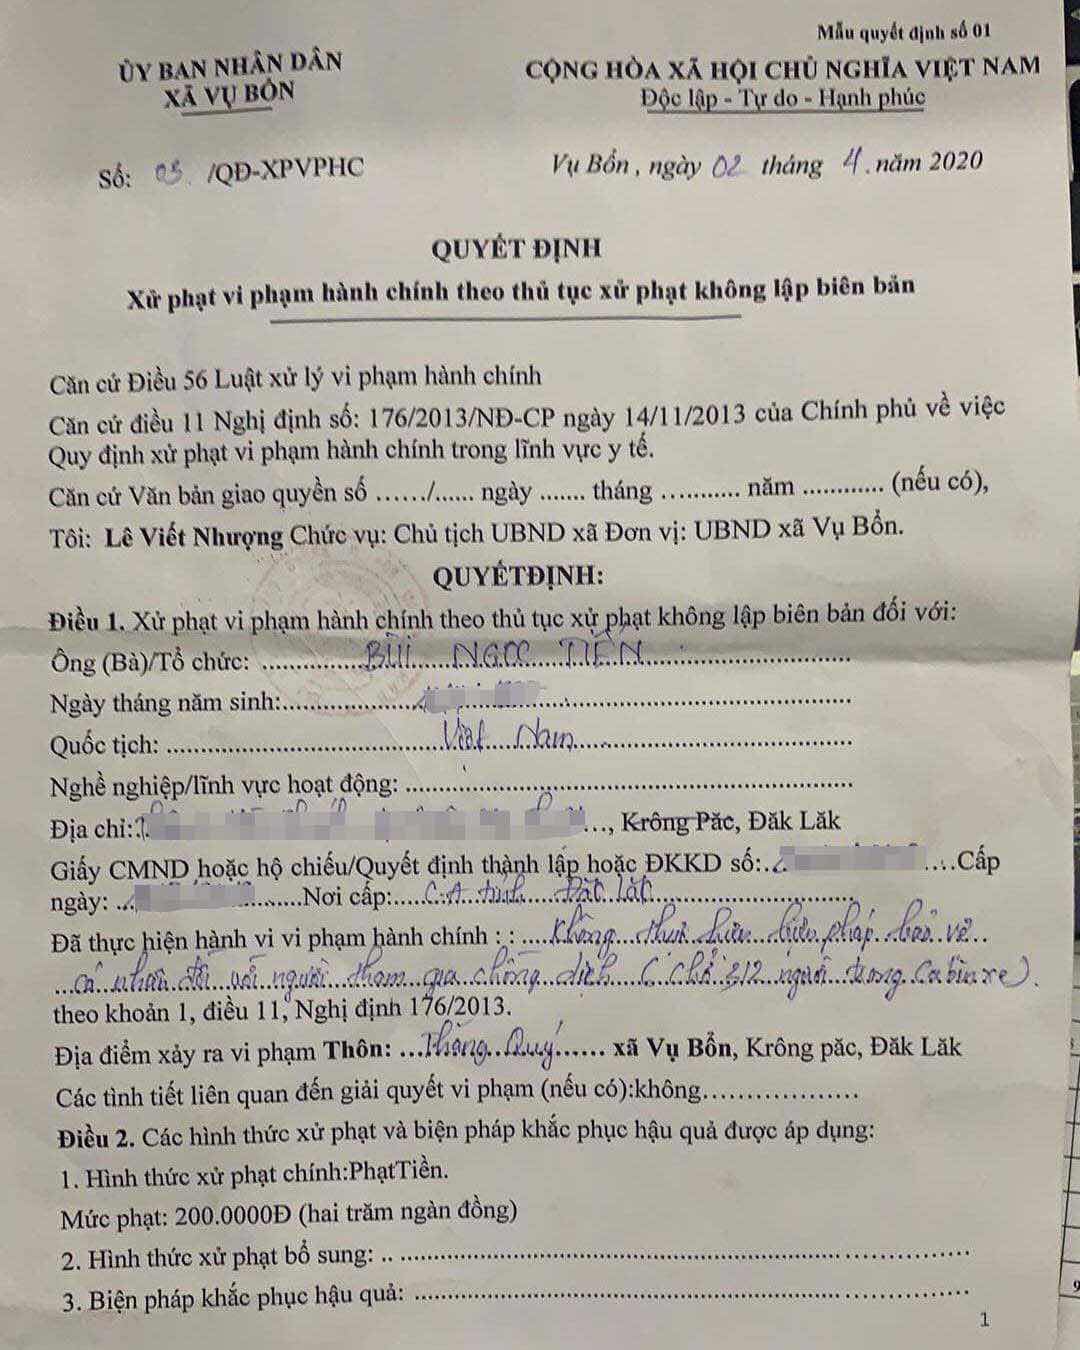 Mẫu quyết định số 01
ỦY BAN NHÂN DÂN
XÃ VỤ BỔN
CỘNG HÒA XÃ HỘI CHỦ NGHĨA VIỆT NAM
Độc lập - Tự do - Hạnh phúc
Số: 03 /QĐ-XPVPHC
Vụ Bổn , ngày 02 tháng 4 . năm 2020
QUYẾT ĐỊNH
Xử phạt vi phạm hành chính theo thủ tục xử phạt không lập biên bản
Căn cứ Điều 56 Luật xử lý vi phạm hành chính
Căn cứ điều 11 Nghị định số: 176/2013/NĐ-CP ngày 14/11/2013 của Chính phủ về việc
Quy định xử phạt vi phạm hành chính trong lĩnh vực y tế.
Căn cứ Văn bản giao quyền số ....../...... ngày ....... tháng ........... năm ............ (nếu có),
Tôi: Lê Viết Nhượng Chức vụ: Chủ tịch UBND xã Đơn vị: UBND xã Vụ Bổn.
QUYẾTĐỊNH:
Điều 1. Xử phạt vi phạm hành chính theo thủ tục xử phạt không lập biên bản đối với:
Ông (Bà)/Tổ chức: BÙI NGỌC TIẾN
Ngày tháng năm sinh:
Quốc tịch: Việt Nam
Nghề nghiệp/lĩnh vực hoạt động:
Địa chỉ: ..., Krông Păc, Đăk Lăk
Giấy CMND hoặc hộ chiếu/Quyết định thành lập hoặc ĐKKD số: ....Cấp
ngày: ......Nơi cấp: C.A tỉnh Đăk Lăk
Đã thực hiện hành vi vi phạm hành chính : : Không thực hiện biện pháp bảo vệ
cá nhân đối với người tham gia chống dịch ( chở 3/2 người trong Cabin xe)
theo khoản 1, điều 11, Nghị định 176/2013.
Địa điểm xảy ra vi phạm Thôn: ... Thăng Quý ...... xã Vụ Bổn, Krông păc, Đăk Lăk
Các tình tiết liên quan đến giải quyết vi phạm (nếu có):không..................
Điều 2. Các hình thức xử phạt và biện pháp khắc phục hậu quả được áp dụng:
1. Hình thức xử phạt chính:PhạtTiền.
Mức phạt: 200.0000Đ (hai trăm ngàn đồng)
2. Hình thức xử phạt bổ sung: ..
3. Biện pháp khắc phục hậu quả:
1